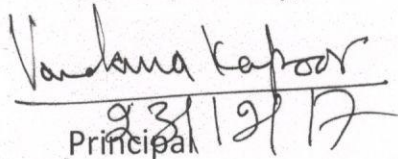 Vandana Kapoor
23/12/17
Principal